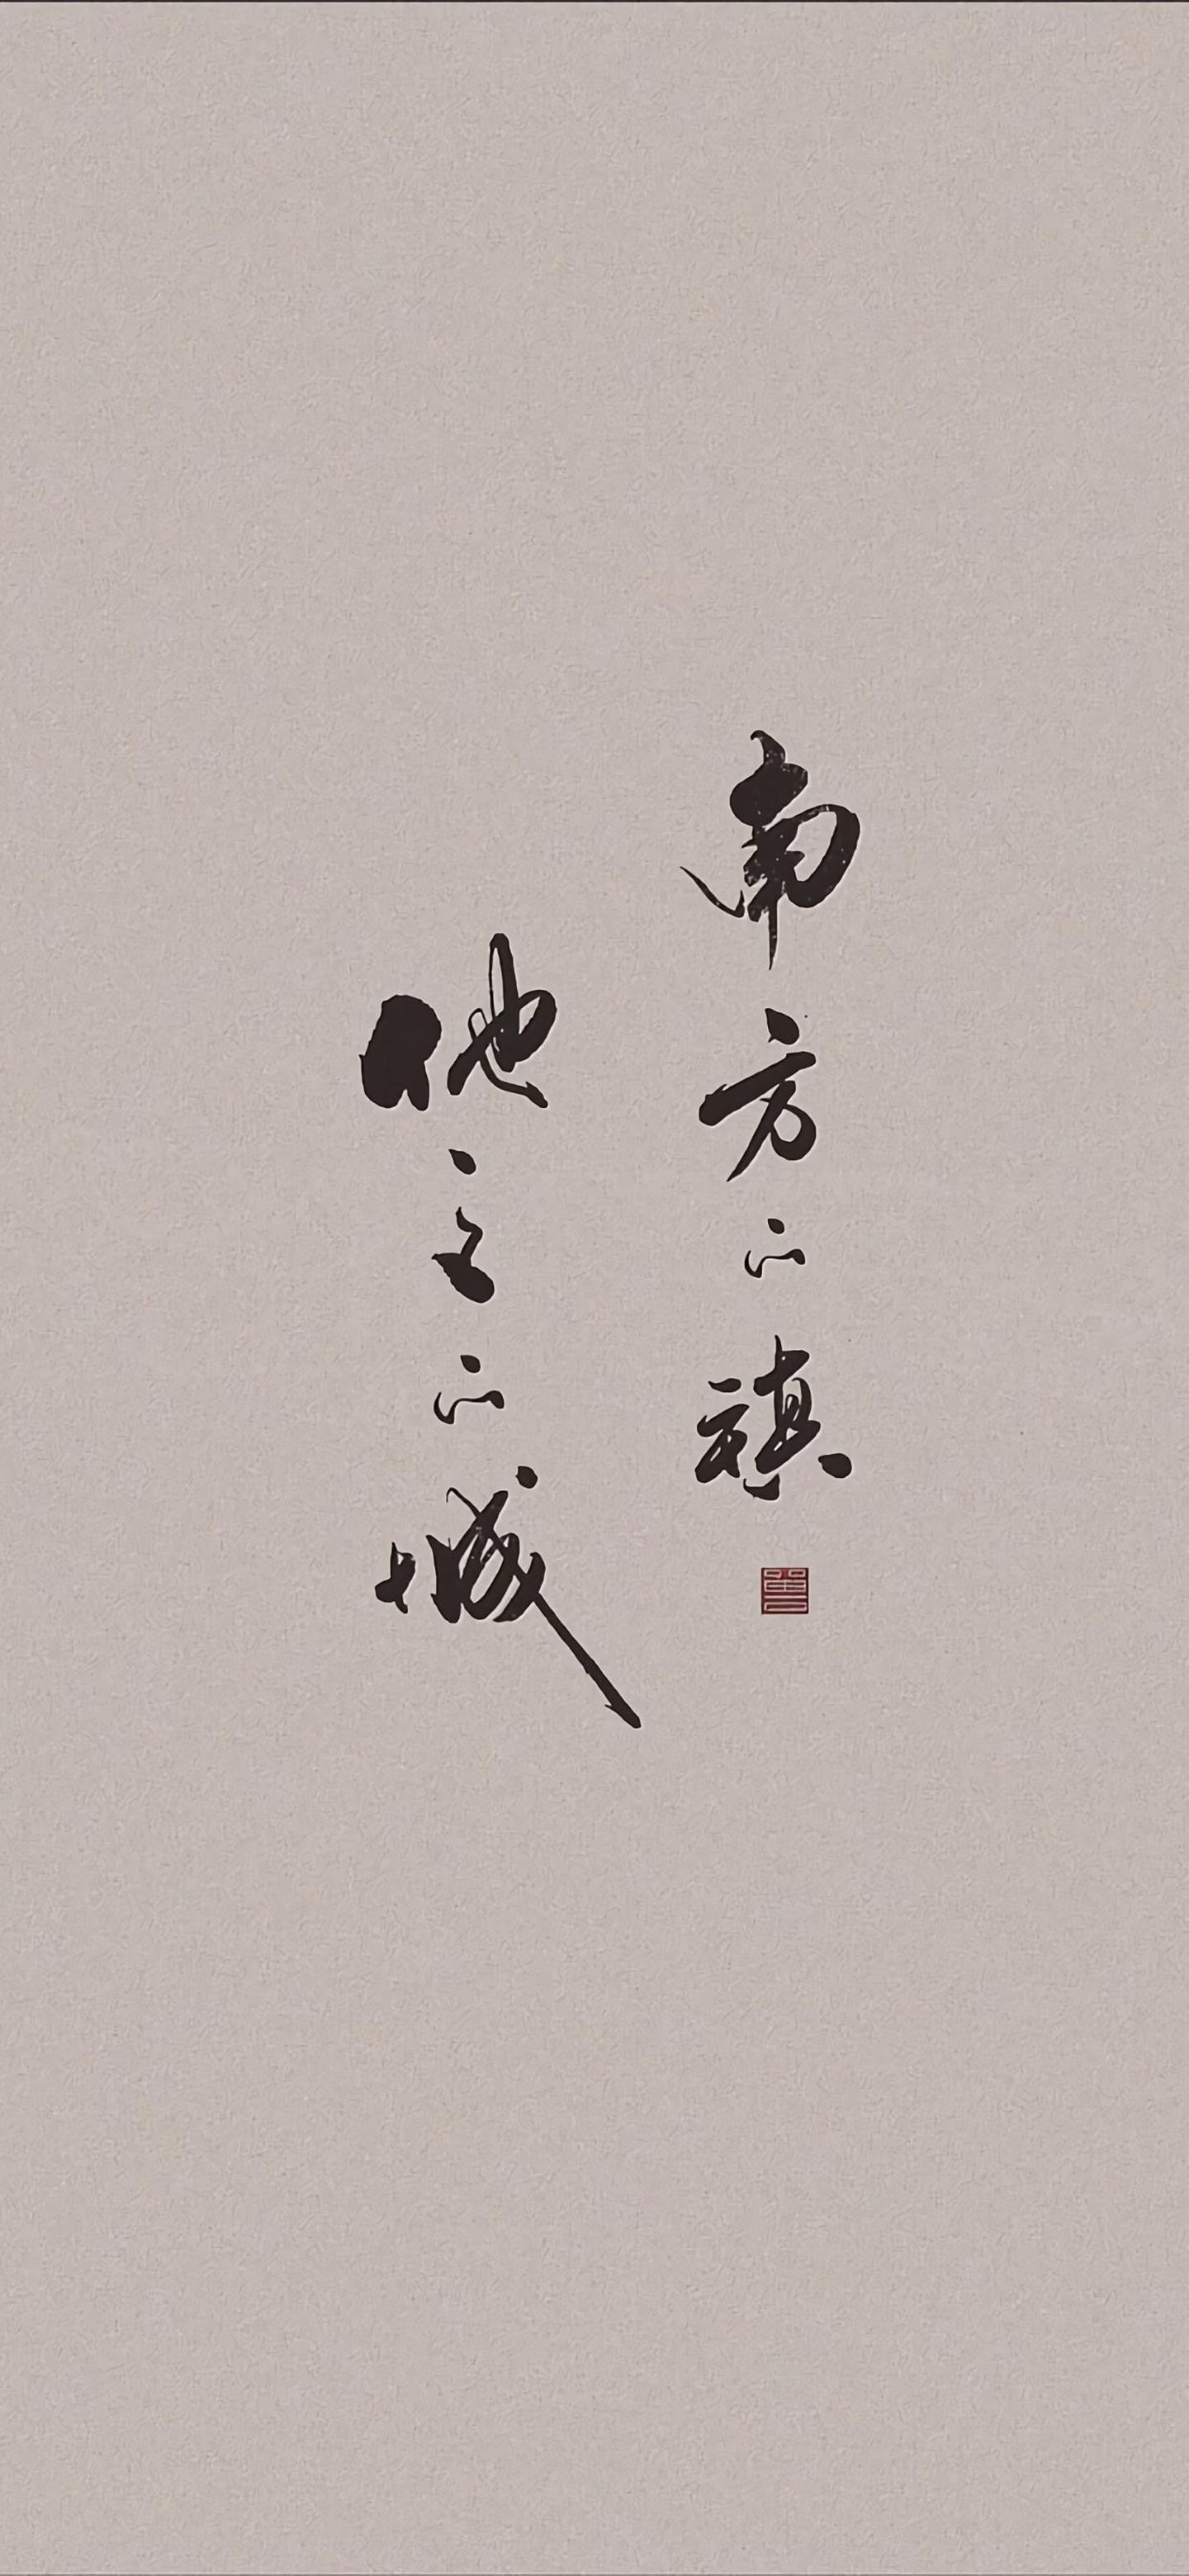 南方小镇
他之小城